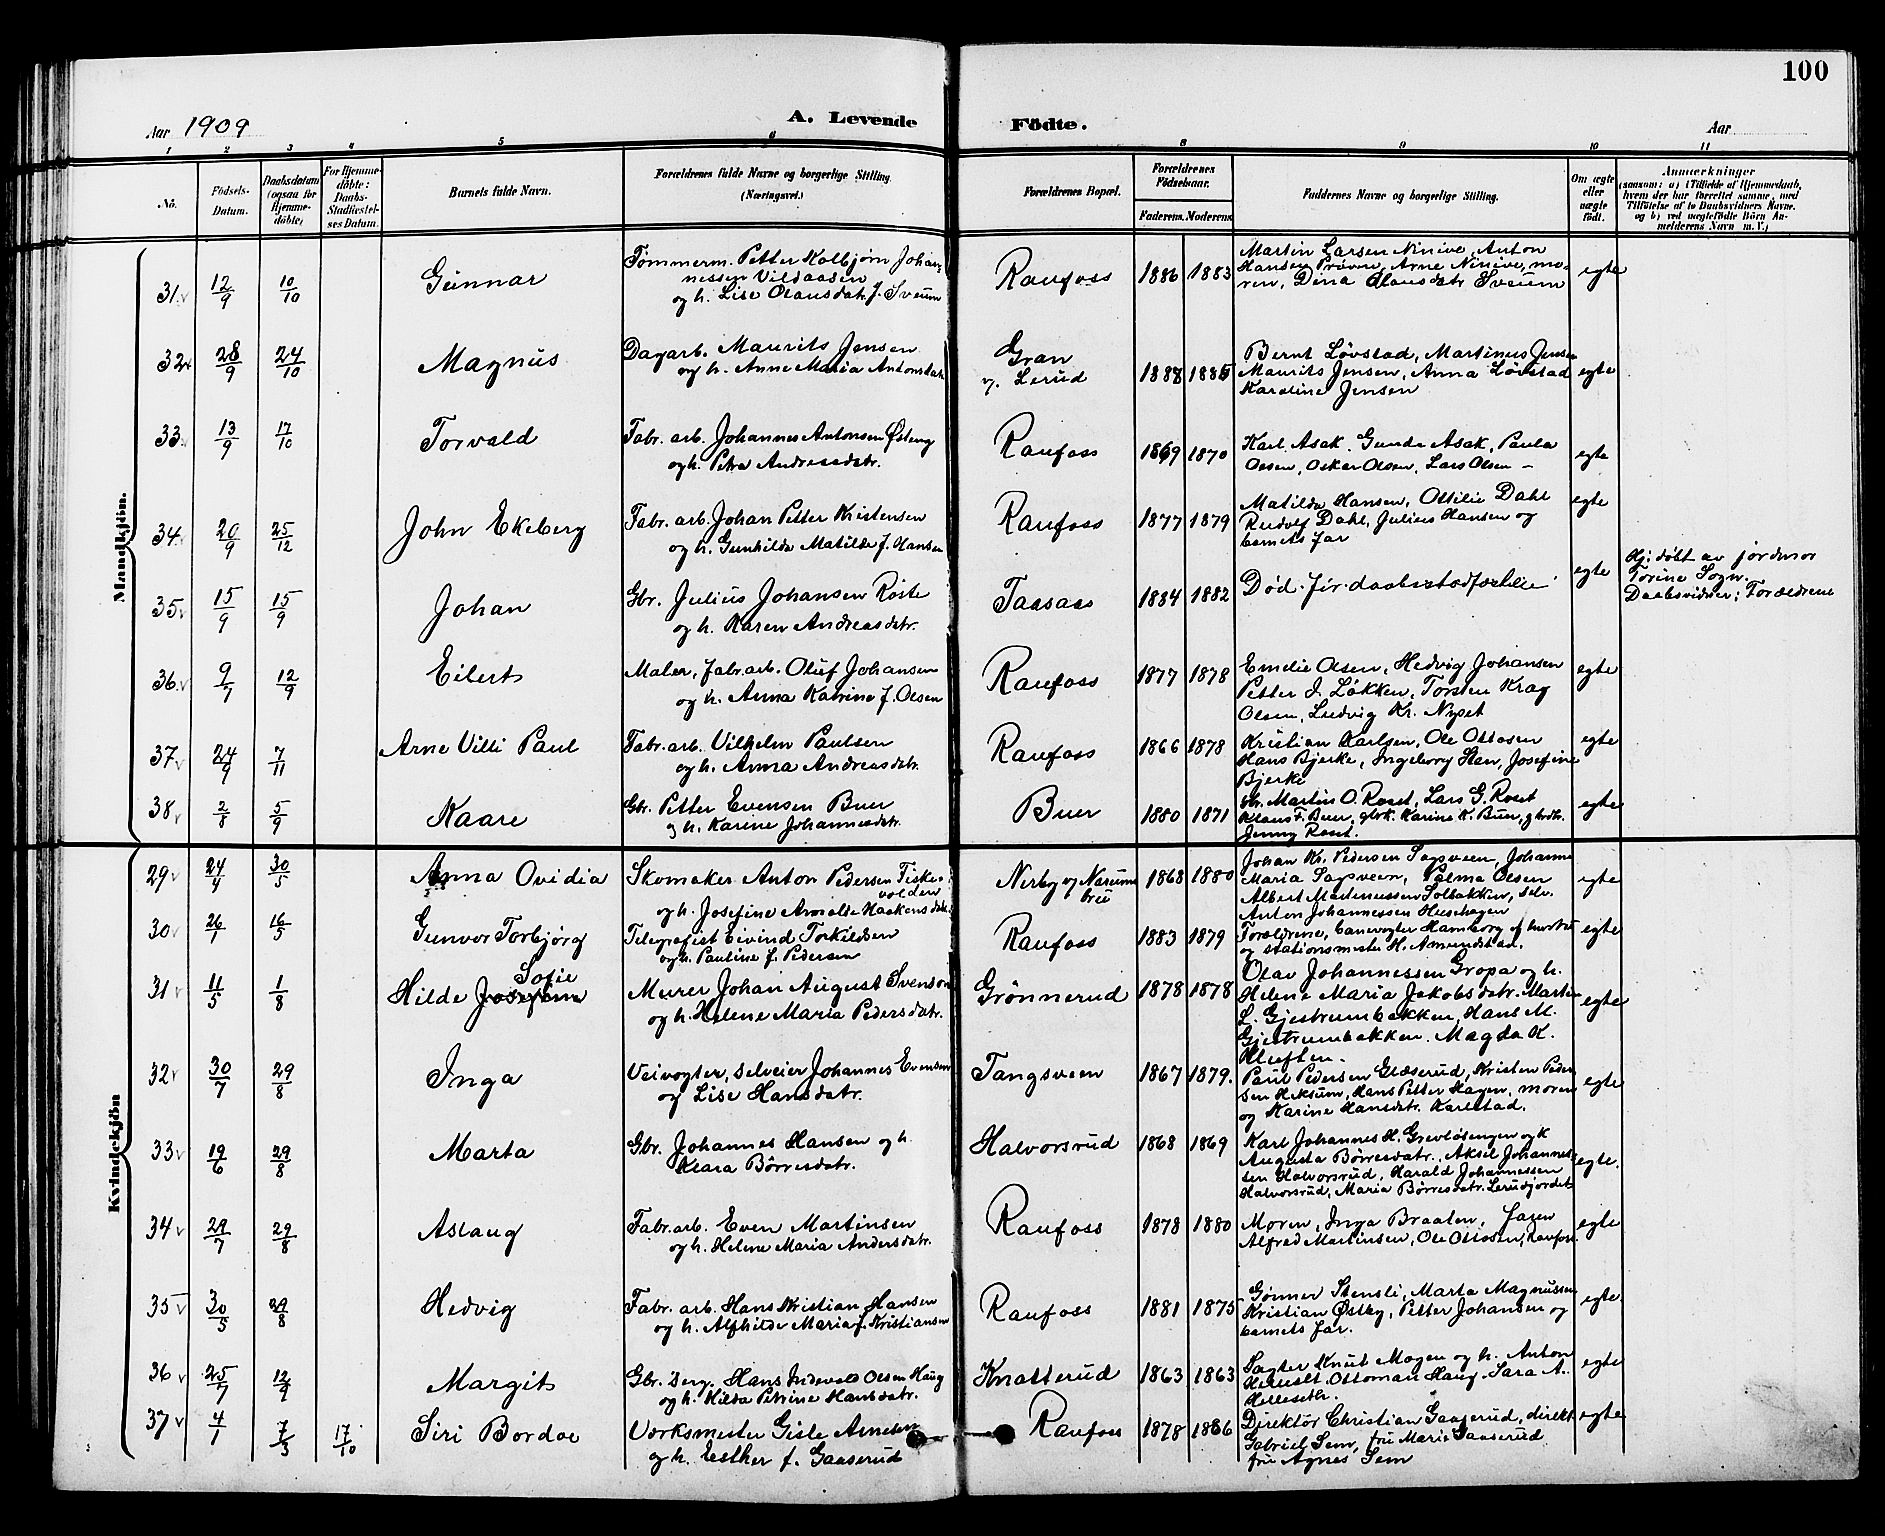 100
Aar 1909
A. Levende Födte.
Aar
1 2 3 4 5 6 8 9 10 11
No.
Födsels-Datum.
Daabsdatum (ogsaa for Hjemmedöbte)
For Hjemmedöbte: Daabs-Stadfæstelses Datum.
Barnets fulde Navn.
Forældrenes fulde Navne og borgerlige Stilling. (Næringsvei.)
Forældrenes Bopæl.
Forældrenes Födselsaar.
Faderens. Moderens
Faddernes Navne og borgerlige Stilling.
Om ægte eller uægte födt.
Anmærkninger
(saasom: a) (Tilfælde af Hjemmedaab, hvem der har forrettet samme, med Tilföielse af to Daabsvidners Navne. og b) ved uægtefödte Börn Anmelderens Navn m. V.)
Mandkjön.
31 12/9 10/10 Gunnar
Tømmerm. Petter Kolbjørn Johan-
nessen Vildaasen
og h. Lise Olausdatr. f. Sveum
Raufoss 1886 1883
Martin Larsen Ninive, Anton
Hansen Prøven, Arne Ninive, mo-
ren, Dina Olausdatr Sveum
egte
32 28/9 24/10 Magnus
Dagarb. Maurits Jensen
og h. Anne Maria Antonsdatr
Gran
v. Lerud
1888 1885
Bernt Løvstad, Martinus Jensen
Maurits Jensen, Anna Løvstad
Karoline Jensen
egte
33 13/9 17/10 Torvald
Fabr. arb. Johannes Antonsen Østeng
og h. Petra Andreasdatr.
Raufoss 1869 1870
Karl Asak. Gunda Asak, Paula
Olsen, Oskar Olsen, Lars Olsen –
egte
34 20/9 25/12 John Ekeberg
Fabr. arb. Johan Petter Kristensen
og h. Gunhilda Matilde f. Hansen
Raufoss 1877 1879
Matilda Hansen, Ottilie Dahl
Rudolf Dahl, Julius Hansen og
barnets far
egte
35 15/9 15/9 Johan
Gbr. Julius Johansen Røste
og h. Karen Andreasdatr.
Taasaas 1884 1882
Død før daabsstadfæstelse
egte
Hj: døbt av jordmor
Torine Sogn.
Daabsvidner: Forældrene
36 9/7 12/9 Eilert
Maler, fabr arb. Oluf Johansen
og h. Anna Katrine f. Olsen
Raufoss 1877 1878
Emelie Olsen, Hedvig Johansen
Petter J. Løkken, Torsten Krag
Olsen, Ludvig Kr. Nyset
egte
37 24/9 7/11 Arne Villi Paul
Fabr. arb. Vilhelm Paulsen
og h. Anna Andreasdatr.
Raufoss 1866 1878
Kristian Karlsen, Ole Ottosen
Hans Bjerke, Ingeborg Hen, Josefine
Bjerke
egte
38 2/8 5/9 Kaare
Gbr. Petter Evensen Buer
og h. Karine Johannesdatr.
Buer 1880 1871
Martin O. Roset, Lars G. Roset
Klaus F. Buer, Karine K. Buer,
Jenny Roset.
egte
Kvindekjön
29 24/4 30/5 Anna Ovidia
Skomaker Anton Pedersen Fiske-
volden
og h. Josefine Amalie Haakensdatr.
Nerby v/ Narum
1868 1880
Johan Kr. Pedersen Sagsveen, Johanne
Maria Sagsveen, Palma Olsen
Albert Martinussen Solbakken, selv.
Anton Johannessen Hushagen
egte
30 26/1 16/5 Gunvor Torbjørg
Telegrafist Eivind Torkildsen
og h. Pauline f. Pedersen
Raufoss 1883 1879
Forældrene, banevogter Hamborg og hustru
og stationsmester H. Amundstad.
egte
31 11/5 1/8 Hilde Josefine Sofie
Murer Johan August Svenson
og h. Helene Maria Pedersdatr.
Grønnerud 1878 1878
Olav Johannessen Gropa og h.
Helene Maria Jakobsdatr. Martin
L. Gjestrumbakken, Hans M.
Gjestrumbakken. Magda K.
Kluften.
egte
32 30/7 29/8 Inga
Veivogter, selveier Johannes Evensen
og Lise Hansdatr.
Tangsveen 1867 1879.
Paul Pedersen Glæserud, Kristen Peder-
sen Heksum, Hans Petter Hagen, moren
og Karine Hansdatr. Karlstad.
egte
33 19/6 29/8 Marta
Gbr. Johannes Hansen og h.
Klara Børresdatr.
Halvorsrud 1868 1869
Karl Johannes H. Grevløsengen og k
Augusta Børresdatr., Aksel Johannes-
sen Halvorsrud, Harald Johannessen
Halvorsrud, Maria Børresdatr. Lerudjordet
egte.
34 29/7 29/8 Aslaug
Fabr. arb. Even Martinsen
og h. Helene Maria Andersdatr.
Raufoss 1878 1880
Moren, Inga Braaten, faren
Alfred Martinsen, Ole Ottosen, Raufoss.
egte
35 30/5 29/8 Hedvig
Fabr. arb. Hans Kristian Hansen
og h. Alfhilde Maria f. Kristiansen
Raufoss 1881 1875
Gunner Stensli, Marta Magnussen
Kristian Østby, Petter Johansen og
barnets far.
egte
36 25/7 12/9 Margit
Gbr. Serg. Hans Indevald Olsen Haug
og h. Hilda Petrine Hansdatr.
Knatterud 1863 1863
Sagter Knut Mogen og h. Anton
Ottoman Haug. Sara A.
egte
37 4/1 7/3 17/10 Siri Bordoe
Verksmester Gisle Arnesen
og h. Esther f. Gaaserud
Raufoss 1878 1886
Direktør Christian Gaaserud, direkt
Gabriel Sem, fru Marie Gaaserud
fru Agnes Sem
egte